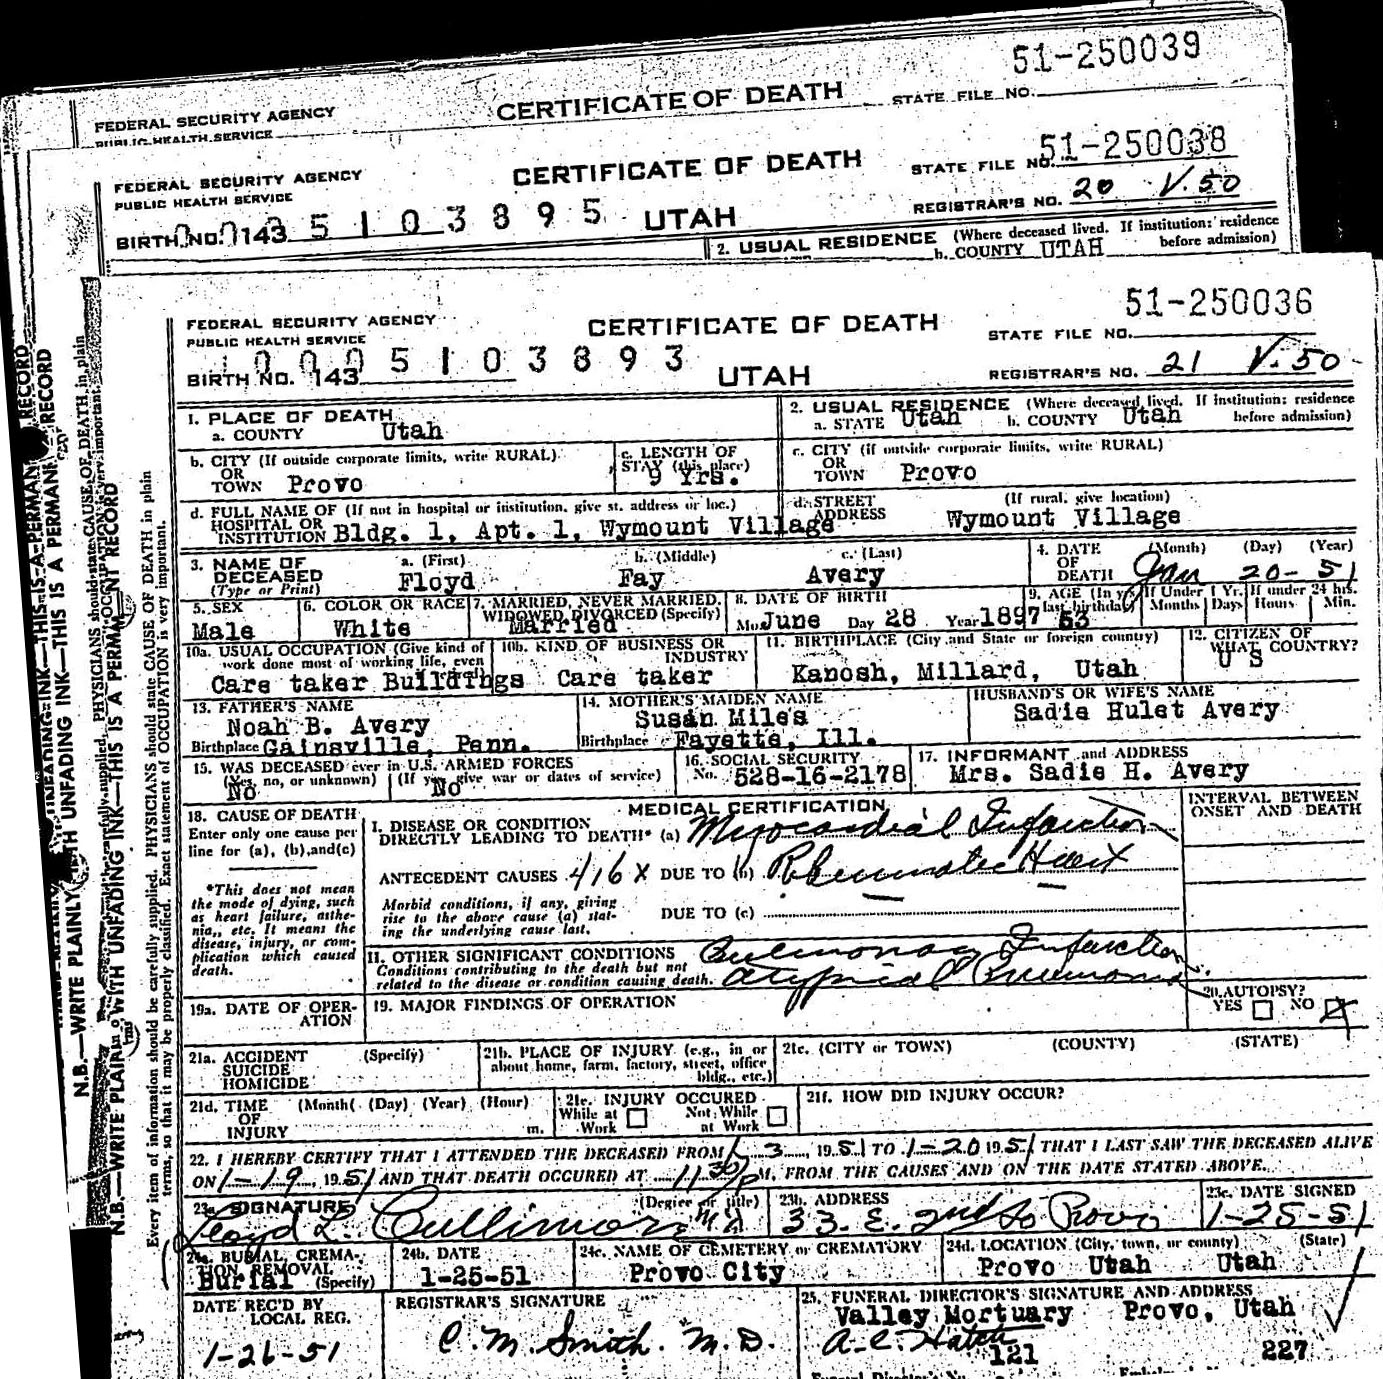 51-250039
FEDERAL SECURITY AGENCY CERTIFICATE OF DEATH STATE FILE NO.
PUBLIC HEALTH SERVICE
51-250038
FEDERAL SECURITY AGENCY CERTIFICATE OF DEATH STATE FILE NO.
PUBLIC HEALTH SERVICE REGISTRAR'S NO. 20 V.50
BIRTH NO. 143 5103895 UTAH
2. USUAL RESIDENCE (Where deceased lived. If institution: residence before admission)
b. COUNTY UTAH
51-250036
FEDERAL SECURITY AGENCY CERTIFICATE OF DEATH STATE FILE NO.
PUBLIC HEALTH SERVICE
BIRTH NO. 143 0005103893 UTAH REGISTRAR'S NO. 21 V.50
1. PLACE OF DEATH
a. COUNTY Utah
2. USUAL RESIDENCE (Where deceased lived. If institution: residence before admission)
a. STATE Utah b. COUNTY Utah
b. CITY (If outside corporate limits, write RURAL)
OR
TOWN Provo
c. LENGTH OF
STAY (this place)
9 Yrs.
c. CITY (if outside corporate limits, write RURAL)
OR
TOWN Provo
d. FULL NAME OF (If not in hospital or institution, give st. address or loc.)
HOSPITAL OR
INSTITUTION Bldg. 1, Apt. 1, Wymount Village
d. STREET (If rural, give location)
ADDRESS Wymount Village
3. NAME OF a. (First) b. (Middle) c. (Last)
DECEASED
(Type or Print) Floyd Fay Avery
4. DATE (Month) (Day) (Year)
OF
DEATH Jan 20-51
5. SEX
Male
6. COLOR OR RACE
White
7. MARRIED, NEVER MARRIED,
WIDOWED DIVORCED (Specify)
Married
8. DATE OF BIRTH
Mo. June Day 28 Year 1897
9. AGE (In yrs. last birthday) If Under 1 Yr. If under 24 hrs.
53 Months Days Hours Min.
10a. USUAL OCCUPATION (Give kind of
work done most of working life, even
Care taker Buildings
10b. KIND OF BUSINESS OR
INDUSTRY
Care taker
11. BIRTHPLACE (City and State or foreign country)
Kanosh, Millard, Utah
12. CITIZEN OF
WHAT COUNTRY?
U S
13. FATHER'S NAME
Noah B. Avery
Birthplace Gainsville, Penn.
14. MOTHER'S MAIDEN NAME
Susan Miles
Birthplace Fayette, Ill.
HUSBAND'S OR WIFE'S NAME
Sadie Hulet Avery
15. WAS DECEASED ever in U.S. ARMED FORCES
(Yes, no, or unknown) (If yes, give war or dates of service)
No No
16. SOCIAL SECURITY
No. 528-16-2178
17. INFORMANT and ADDRESS
Mrs. Sadie H. Avery
18. CAUSE OF DEATH
Enter only one cause per
line for (a), (b), and (c)
*This does not mean
the mode of dying, such
as heart failure, asthe-
nia, etc. It means the
disease, injury, or com-
plication which caused
death.
MEDICAL CERTIFICATION
I. DISEASE OR CONDITION
DIRECTLY LEADING TO DEATH* (a) Myocardial Infarction
ANTECEDENT CAUSES 416X DUE TO (b) Rheumatic Heart
Morbid conditions, if any, giving
rise to the above cause (a) stat-
ing the underlying cause last.
DUE TO (c)
II. OTHER SIGNIFICANT CONDITIONS Pulmonary Infarction
Conditions contributing to the death but not
related to the disease or condition causing death. atypical Pneumonia
INTERVAL BETWEEN
ONSET AND DEATH
19a. DATE OF OPER-
ATION
19. MAJOR FINDINGS OF OPERATION
20. AUTOPSY?
YES NO X
21a. ACCIDENT (Specify)
SUICIDE
HOMICIDE
21b. PLACE OF INJURY (e.g., in or
about home, farm, factory, street, office
bldg., etc.)
21c. (CITY or TOWN) (COUNTY) (STATE)
21d. TIME (Month) (Day) (Year) (Hour)
OF
INJURY m.
21e. INJURY OCCURED
While at Work Not While at Work
21f. HOW DID INJURY OCCUR?
22. I HEREBY CERTIFY THAT I ATTENDED THE DECEASED FROM 1-3, 1951 TO 1-20 1951 THAT I LAST SAW THE DECEASED ALIVE
ON 1-19, 1951 AND THAT DEATH OCCURED AT 11 30/P M, FROM THE CAUSES AND ON THE DATE STATED ABOVE.
23a. SIGNATURE (Degree or title)
Lloyd L. Cullimore M D
23b. ADDRESS
33. E. 2nd So Provo
23c. DATE SIGNED
1-25-51
24a. BURIAL, CREMA-
TION REMOVAL
Burial (Specify)
24b. DATE
1-25-51
24c. NAME OF CEMETERY or CREMATORY
Provo City
24d. LOCATION (City, town, or county) (State)
Provo Utah Utah
DATE REC'D BY
LOCAL REG.
1-26-51
REGISTRAR'S SIGNATURE
C. M. Smith. M.D.
25. FUNERAL DIRECTOR'S SIGNATURE AND ADDRESS
Valley Mortuary Provo, Utah
A. C. Hatch
121 227
N.B.—WRITE PLAINLY WITH UNFADING INK—THIS IS A PERMANENT RECORD
Every item of information should be carefully supplied. PHYSICIANS should state CAUSE OF DEATH in plain
terms, so that it may be properly classified. Exact statement of OCCUPATION is very important.